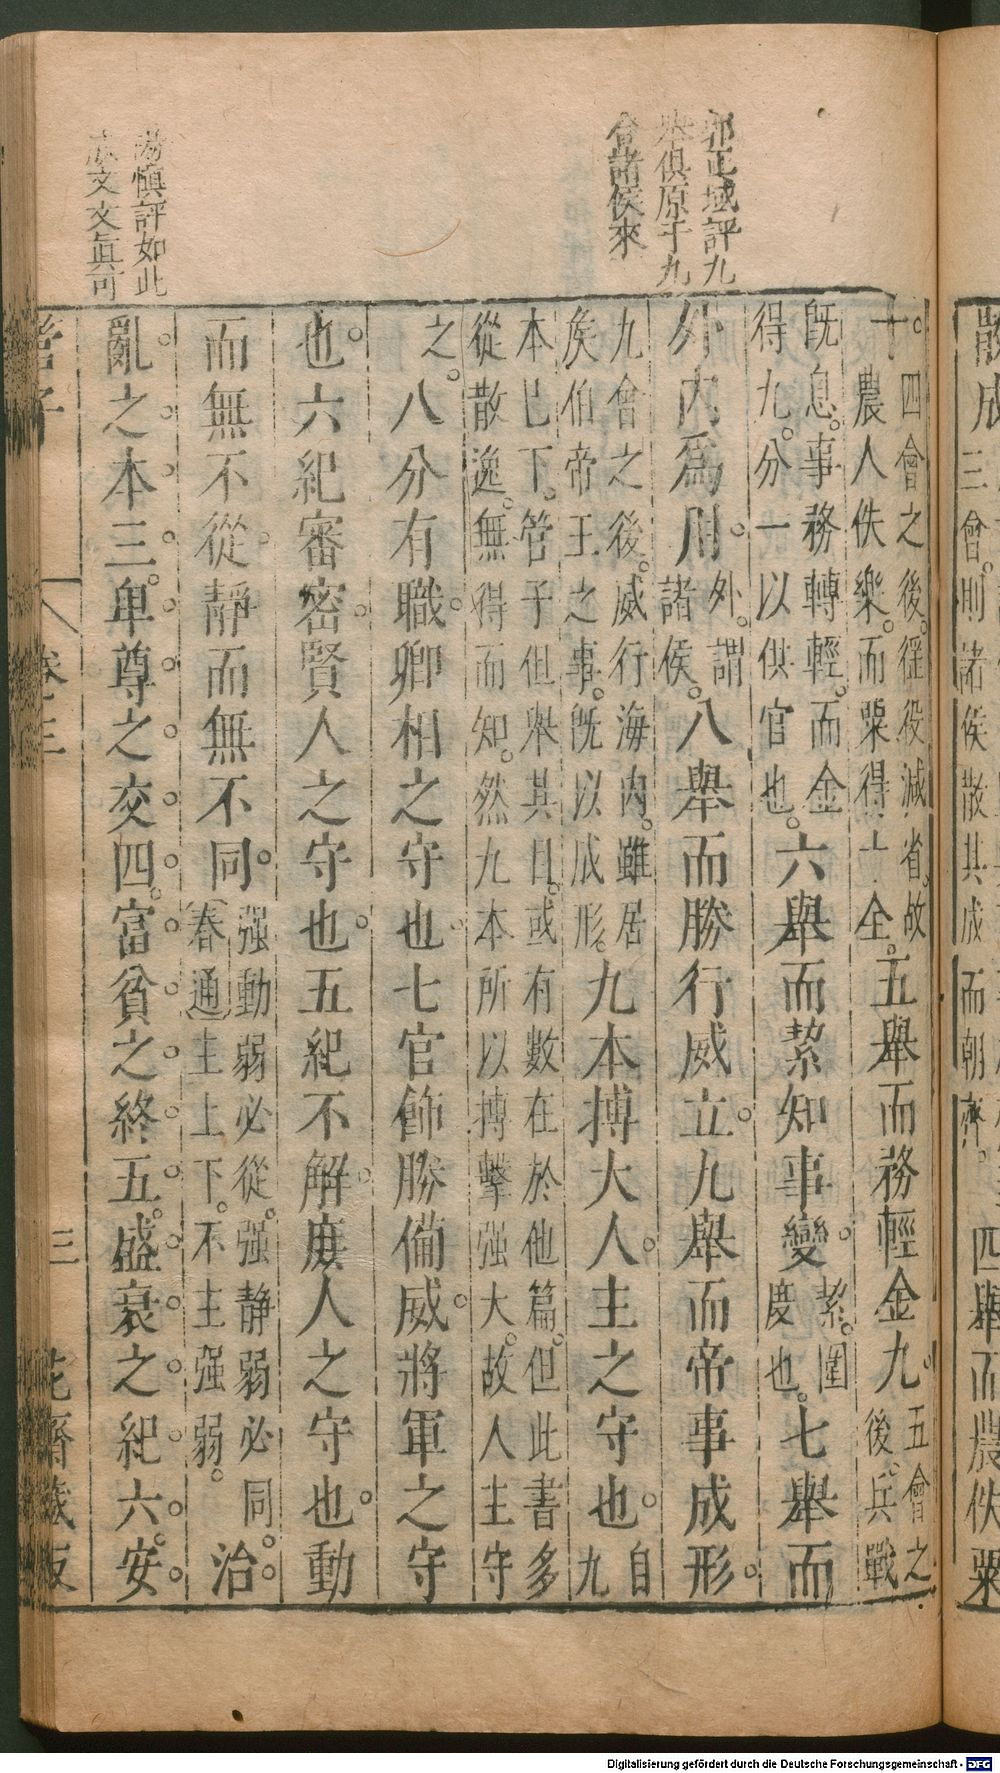 郭正域評九
舉俱原于九
會諸侯來
楊慎評如此
文文眞可
十四會之後徭役減省故農人佚樂而粟得十全五舉而務輕金九五會之後兵戰
既息事務轉輕而金得九分一以供官也六舉而絜知事變絜圍度也七舉而
外內爲用外謂諸侯八舉而勝行威立九舉而帝事成形
九會之後威行海內雖居侯伯帝王之事既以成形九本搏大人主之守也自九
本已下管子但舉其目或有數在於他篇但此書多從散逸無得而知然九本所以搏擊强大故人主守
之八分有職卿相之守也七官飾勝備威將軍之守
也六紀審密賢人之守也五紀不解庶人之守也動
而無不從靜而無不同强動弱必從强静弱必同春通主上下不主强弱治
亂之本三卑尊之交四富貧之終五盛衰之紀六安
管子
卷三
三
花齋藏板
散成
三會則諸侯散其成
而朝齊
四舉而農佚粟
Digitalisierung gefördert durch die Deutsche Forschungsgemeinschaft - DFG